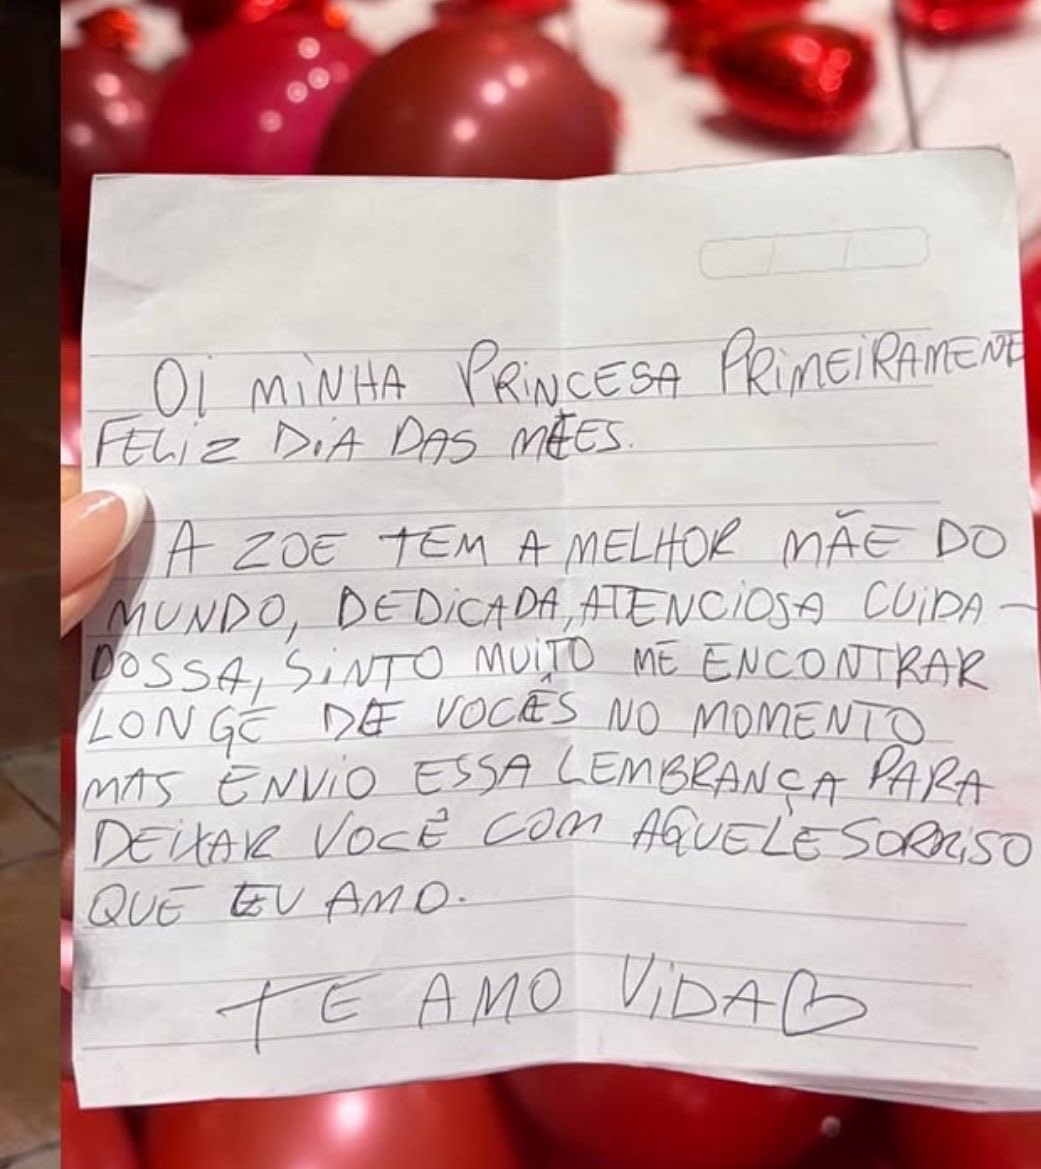 OI MINHA PRINCESA PRIMEIRAMENTE
FELIZ DIA DAS MÃES.
A ZOE TEM A MELHOR MÃE DO
MUNDO, DEDICADA, ATENCIOSA CUIDA-
DOSSA, SINTO MUITO ME ENCONTRAR
LONGE DE VOCÊS NO MOMENTO
MAS ENVIO ESSA LEMBRANÇA PARA
DEIXAR VOCÊ COM AQUELE SORRISO
QUE EU AMO.
TE AMO VIDA